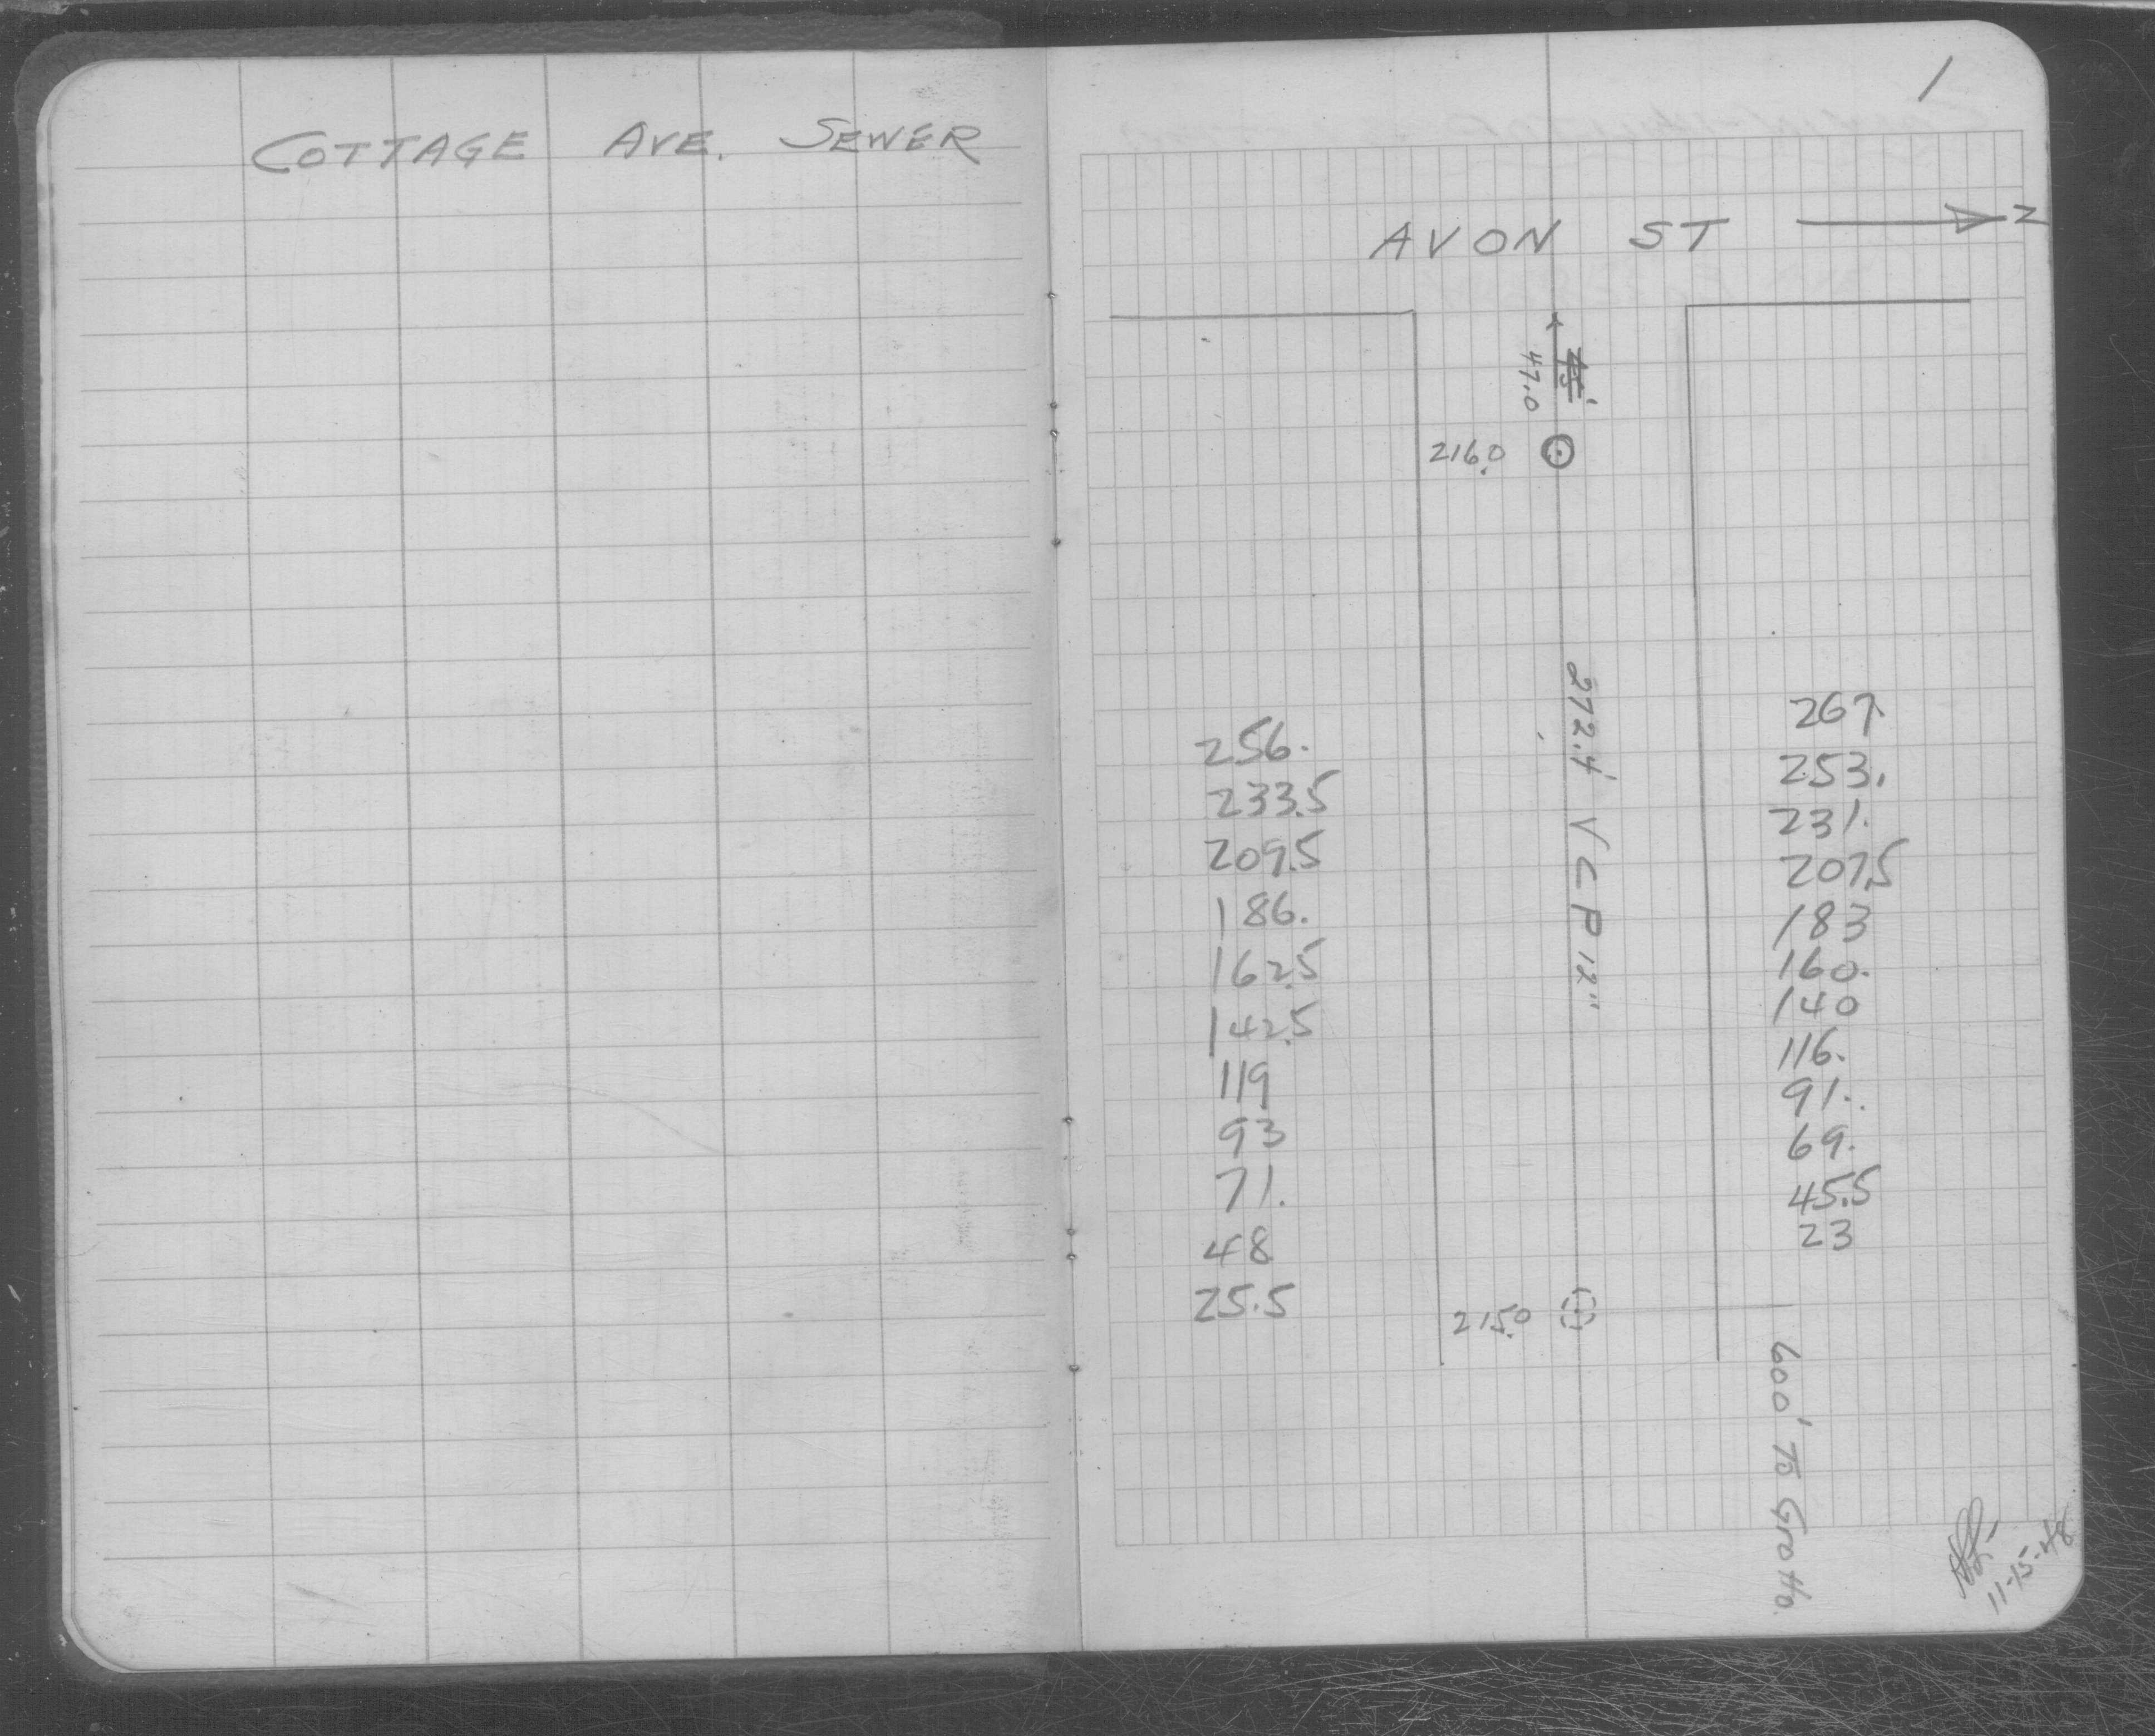 COTTAGE AVE. SEWER
1
AVON ST N
47.0
216.0
272.4' VCP 12"
256.
233.5
209.5
186.
162.5
142.5
119
93
71.
48
25.5
267.
253.
231.
207.5
183
160.
140
116.
91.
69.
45.5
23
215.0
600' To Grotto.
11-15-48